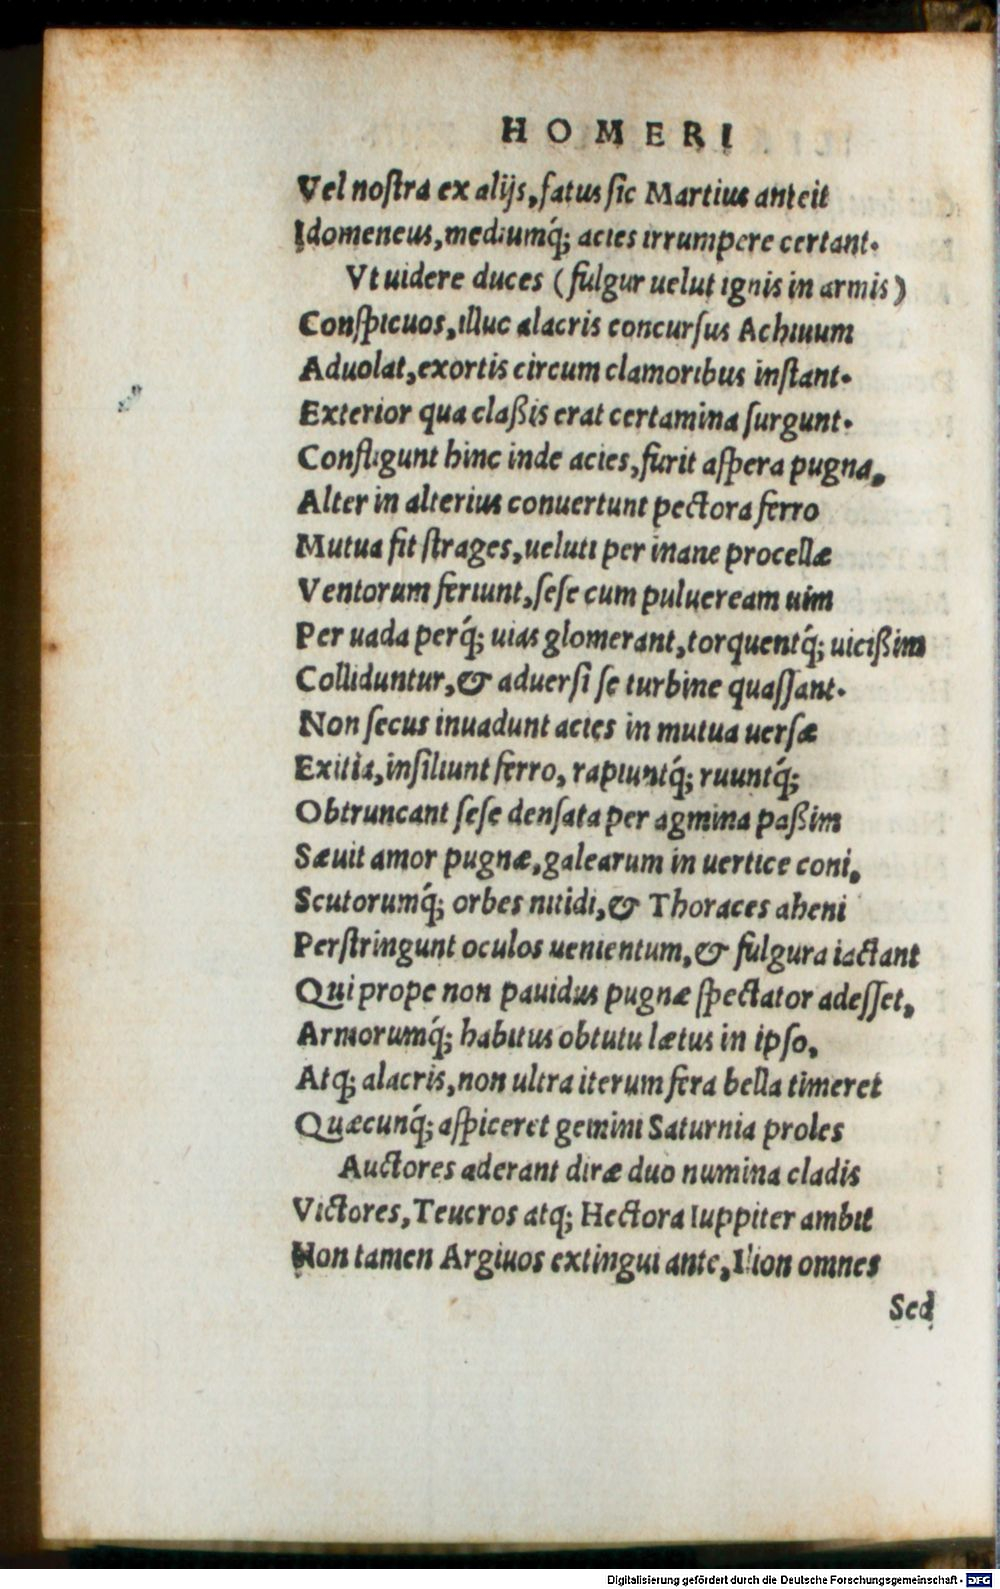 HOMERI
Vel nostra ex alijs, fatus sic Martius anteit
Idomeneus, mediumq́; acies irrumpere certant.
Vt uidere duces (fulgur uelut ignis in armis)
Conspicuos, illuc alacris concursus Achiuum
Aduolat, exortis circum clamoribus instant.
Exterior qua claßis erat certamina surgunt.
Confligunt hinc inde acies, furit aspera pugna,
Alter in alterius conuertunt pectora ferro
Mutua fit strages, ueluti per inane procellæ
Ventorum feriunt, sese cum pulueream uim
Per uada perq́; uias glomerant, torquentq́; uicißim
Colliduntur, & aduersi se turbine quassant.
Non secus inuadunt acies in mutua uersæ
Exitia, insiliunt ferro, rapiuntq́; ruuntq́;
Obtruncant sese densata per agmina paßim
Sæuit amor pugnæ, galearum in uertice coni,
Scutorumq́; orbes nitidi, & Thoraces aheni
Perstringunt oculos uenientum, & fulgura iactant
Qui prope non pauidus pugnæ spectator adesset,
Armorumq́; habitus obtutu lætus in ipso,
Atq; alacris, non ultra iterum fera bella timeret
Quæcunq́; aspiceret gemini Saturnia proles
Auctores aderant diræ duo numina cladis
Victores, Teucros atq; Hectora Iuppiter ambit
Non tamen Argiuos extingui ante, Ilion omnes
Sed
Digitalisierung gefördert durch die Deutsche Forschungsgemeinschaft - DFG